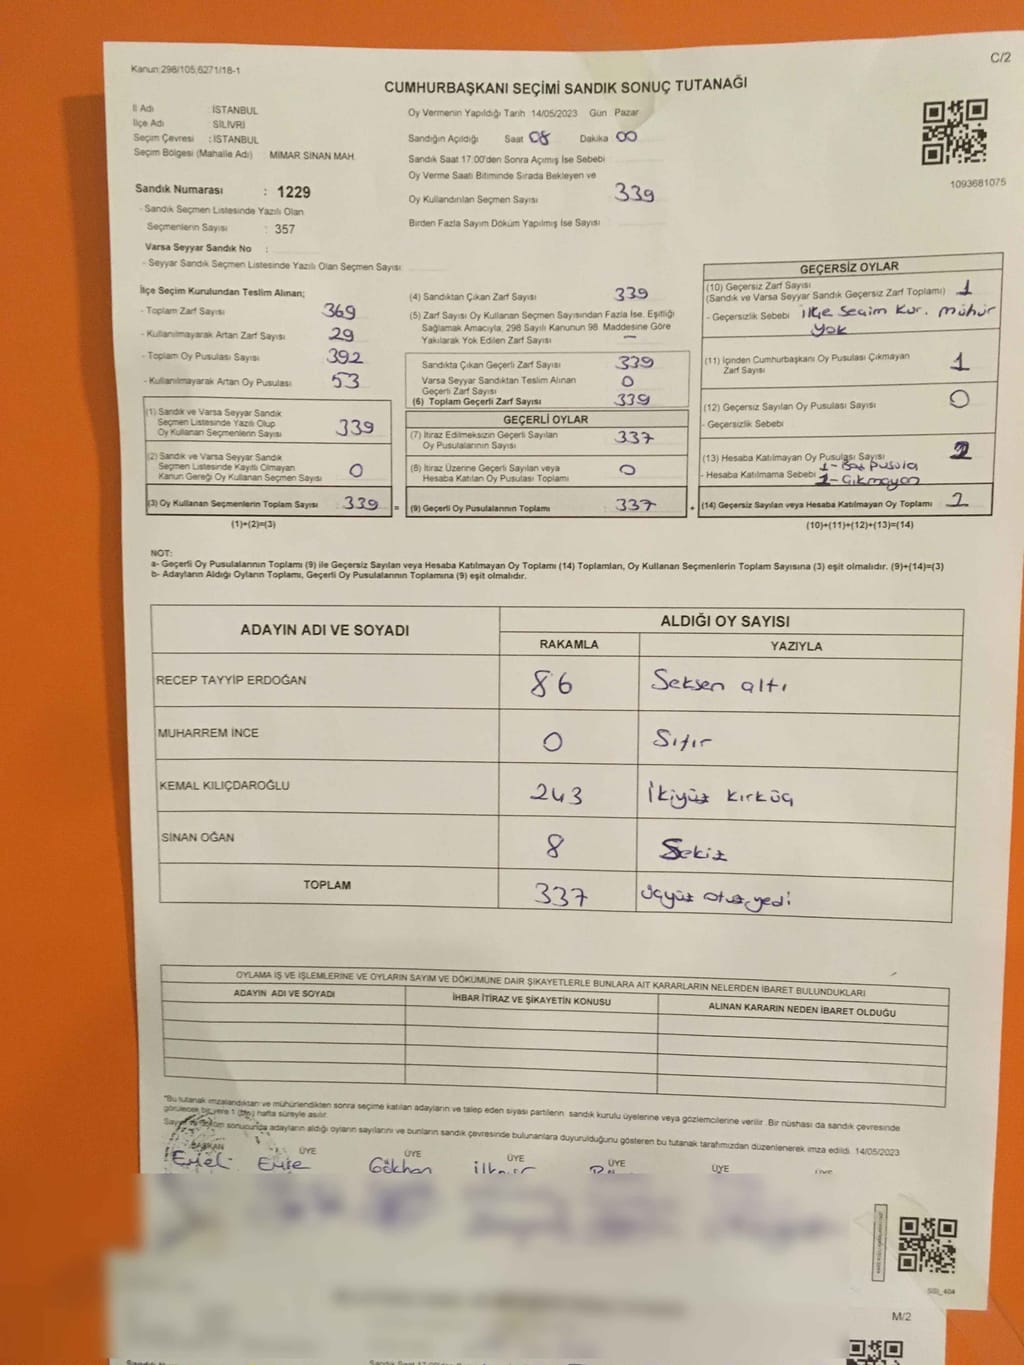 Kanun:298/105,6271/18-1
C/2
CUMHURBAŞKANI SEÇİMİ SANDIK SONUÇ TUTANAĞI
İl Adı : İSTANBUL
İlçe Adı : SİLİVRİ
Seçim Çevresi : İSTANBUL
Seçim Bölgesi (Mahalle Adı) : MİMAR SİNAN MAH.
Oy Vermenin Yapıldığı Tarih 14/05/2023 Gün Pazar
Sandığın Açıldığı Saat 08 Dakika 00
Sandık Saat 17:00'den Sonra Açımış İse Sebebi
Oy Verme Saati Bitiminde Sırada Bekleyen ve
Oy Kullandırılan Seçmen Sayısı 339
Birden Fazla Sayım Döküm Yapılmış İse Sayısı
1093681075
Sandık Numarası : 1229
- Sandık Seçmen Listesinde Yazılı Olan
Seçmenlerin Sayısı : 357
Varsa Seyyar Sandık No :
- Seyyar Sandık Seçmen Listesinde Yazılı Olan Seçmen Sayısı:
İlçe Seçim Kurulundan Teslim Alınan;
- Toplam Zarf Sayısı 369
- Kullanılmayarak Artan Zarf Sayısı 29
- Toplam Oy Pusulası Sayısı 392
- Kullanılmayarak Artan Oy Pusulası 53
(1) Sandık ve Varsa Seyyar Sandık
Seçmen Listesinde Yazılı Olup
Oy Kullanan Seçmenlerin Sayısı 339
(2) Sandık ve Varsa Seyyar Sandık
Seçmen Listesinde Kayıtlı Olmayan
Kanun Gereği Oy Kullanan Seçmen Sayısı 0
(3) Oy Kullanan Seçmenlerin Toplam Sayısı 339
(1)+(2)=(3)
(4) Sandıktan Çıkan Zarf Sayısı 339
(5) Zarf Sayısı Oy Kullanan Seçmen Sayısından Fazla İse, Eşitliği
Sağlamak Amacıyla, 298 Sayılı Kanunun 98. Maddesine Göre
Yakılarak Yok Edilen Zarf Sayısı —
Sandıkta Çıkan Geçerli Zarf Sayısı 339
Varsa Seyyar Sandıktan Teslim Alınan
Geçerli Zarf Sayısı 0
(6) Toplam Geçerli Zarf Sayısı 339
GEÇERLİ OYLAR
(7) İtiraz Edilmeksizin Geçerli Sayılan
Oy Pusulalarının Sayısı 337
(8) İtiraz Üzerine Geçerli Sayılan veya
Hesaba Katılan Oy Pusulası Toplamı 0
= (9) Geçerli Oy Pusulalarının Toplamı 337
GEÇERSİZ OYLAR
(10) Geçersiz Zarf Sayısı
(Sandık ve Varsa Seyyar Sandık Geçersiz Zarf Toplamı) 1
- Geçersizlik Sebebi ilçe Seçim Kur. mühür
yok
(11) İçinden Cumhurbaşkanı Oy Pusulası Çıkmayan
Zarf Sayısı 1
(12) Geçersiz Sayılan Oy Pusulası Sayısı 0
- Geçersizlik Sebebi
(13) Hesaba Katılmayan Oy Pusulası Sayısı 2
- Hesaba Katılmama Sebebi 1-Boş pusula
1-Çıkmayan
+ (14) Geçersiz Sayılan veya Hesaba Katılmayan Oy Toplamı 2
(10)+(11)+(12)+(13)=(14)
NOT:
a- Geçerli Oy Pusulalarının Toplamı (9) ile Geçersiz Sayılan veya Hesaba Katılmayan Oy Toplamı (14) Toplamları, Oy Kullanan Seçmenlerin Toplam Sayısına (3) eşit olmalıdır. (9)+(14)=(3)
b- Adayların Aldığı Oyların Toplamı, Geçerli Oy Pusulalarının Toplamına (9) eşit olmalıdır.
ADAYIN ADI VE SOYADI
ALDIĞI OY SAYISI
RAKAMLA YAZIYLA
RECEP TAYYİP ERDOĞAN 86 Seksen altı
MUHARREM İNCE 0 Sıfır
KEMAL KILIÇDAROĞLU 243 İkiyüz kırküç
SİNAN OĞAN 8 Sekiz
TOPLAM 337 üçyüz otuzyedi
OYLAMA İŞ VE İŞLEMLERİNE VE OYLARIN SAYIM VE DÖKÜMÜNE DAİR ŞİKAYETLERLE BUNLARA AİT KARARLARIN NELERDEN İBARET BULUNDUKLARI
ADAYIN ADI VE SOYADI İHBAR İTİRAZ VE ŞİKAYETİN KONUSU ALINAN KARARIN NEDEN İBARET OLDUĞU
*Bu tutanak imzalandıktan ve mühürlendikten sonra seçime katılan adayların ve talep eden siyasi partilerin sandık kurulu üyelerine veya gözlemcilerine verilir. Bir nüshası da sandık çevresinde
görülecek bir yere 1 (bir) hafta süreyle asılır.
Sayım ve döküm sonucunda adayların aldığı oyların sayılarını ve bunların sandık çevresinde bulunanlara duyurulduğunu gösteren bu tutanak tarafımızdan düzenlenerek imza edildi. 14/05/2023
BAŞKAN ÜYE ÜYE ÜYE ÜYE ÜYE
Emel Emre Gökhan
SSI_404
M/2